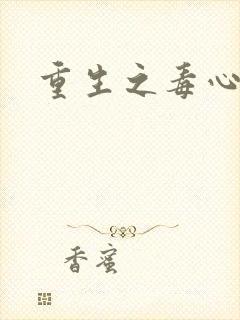 重生之毒心
香蜜